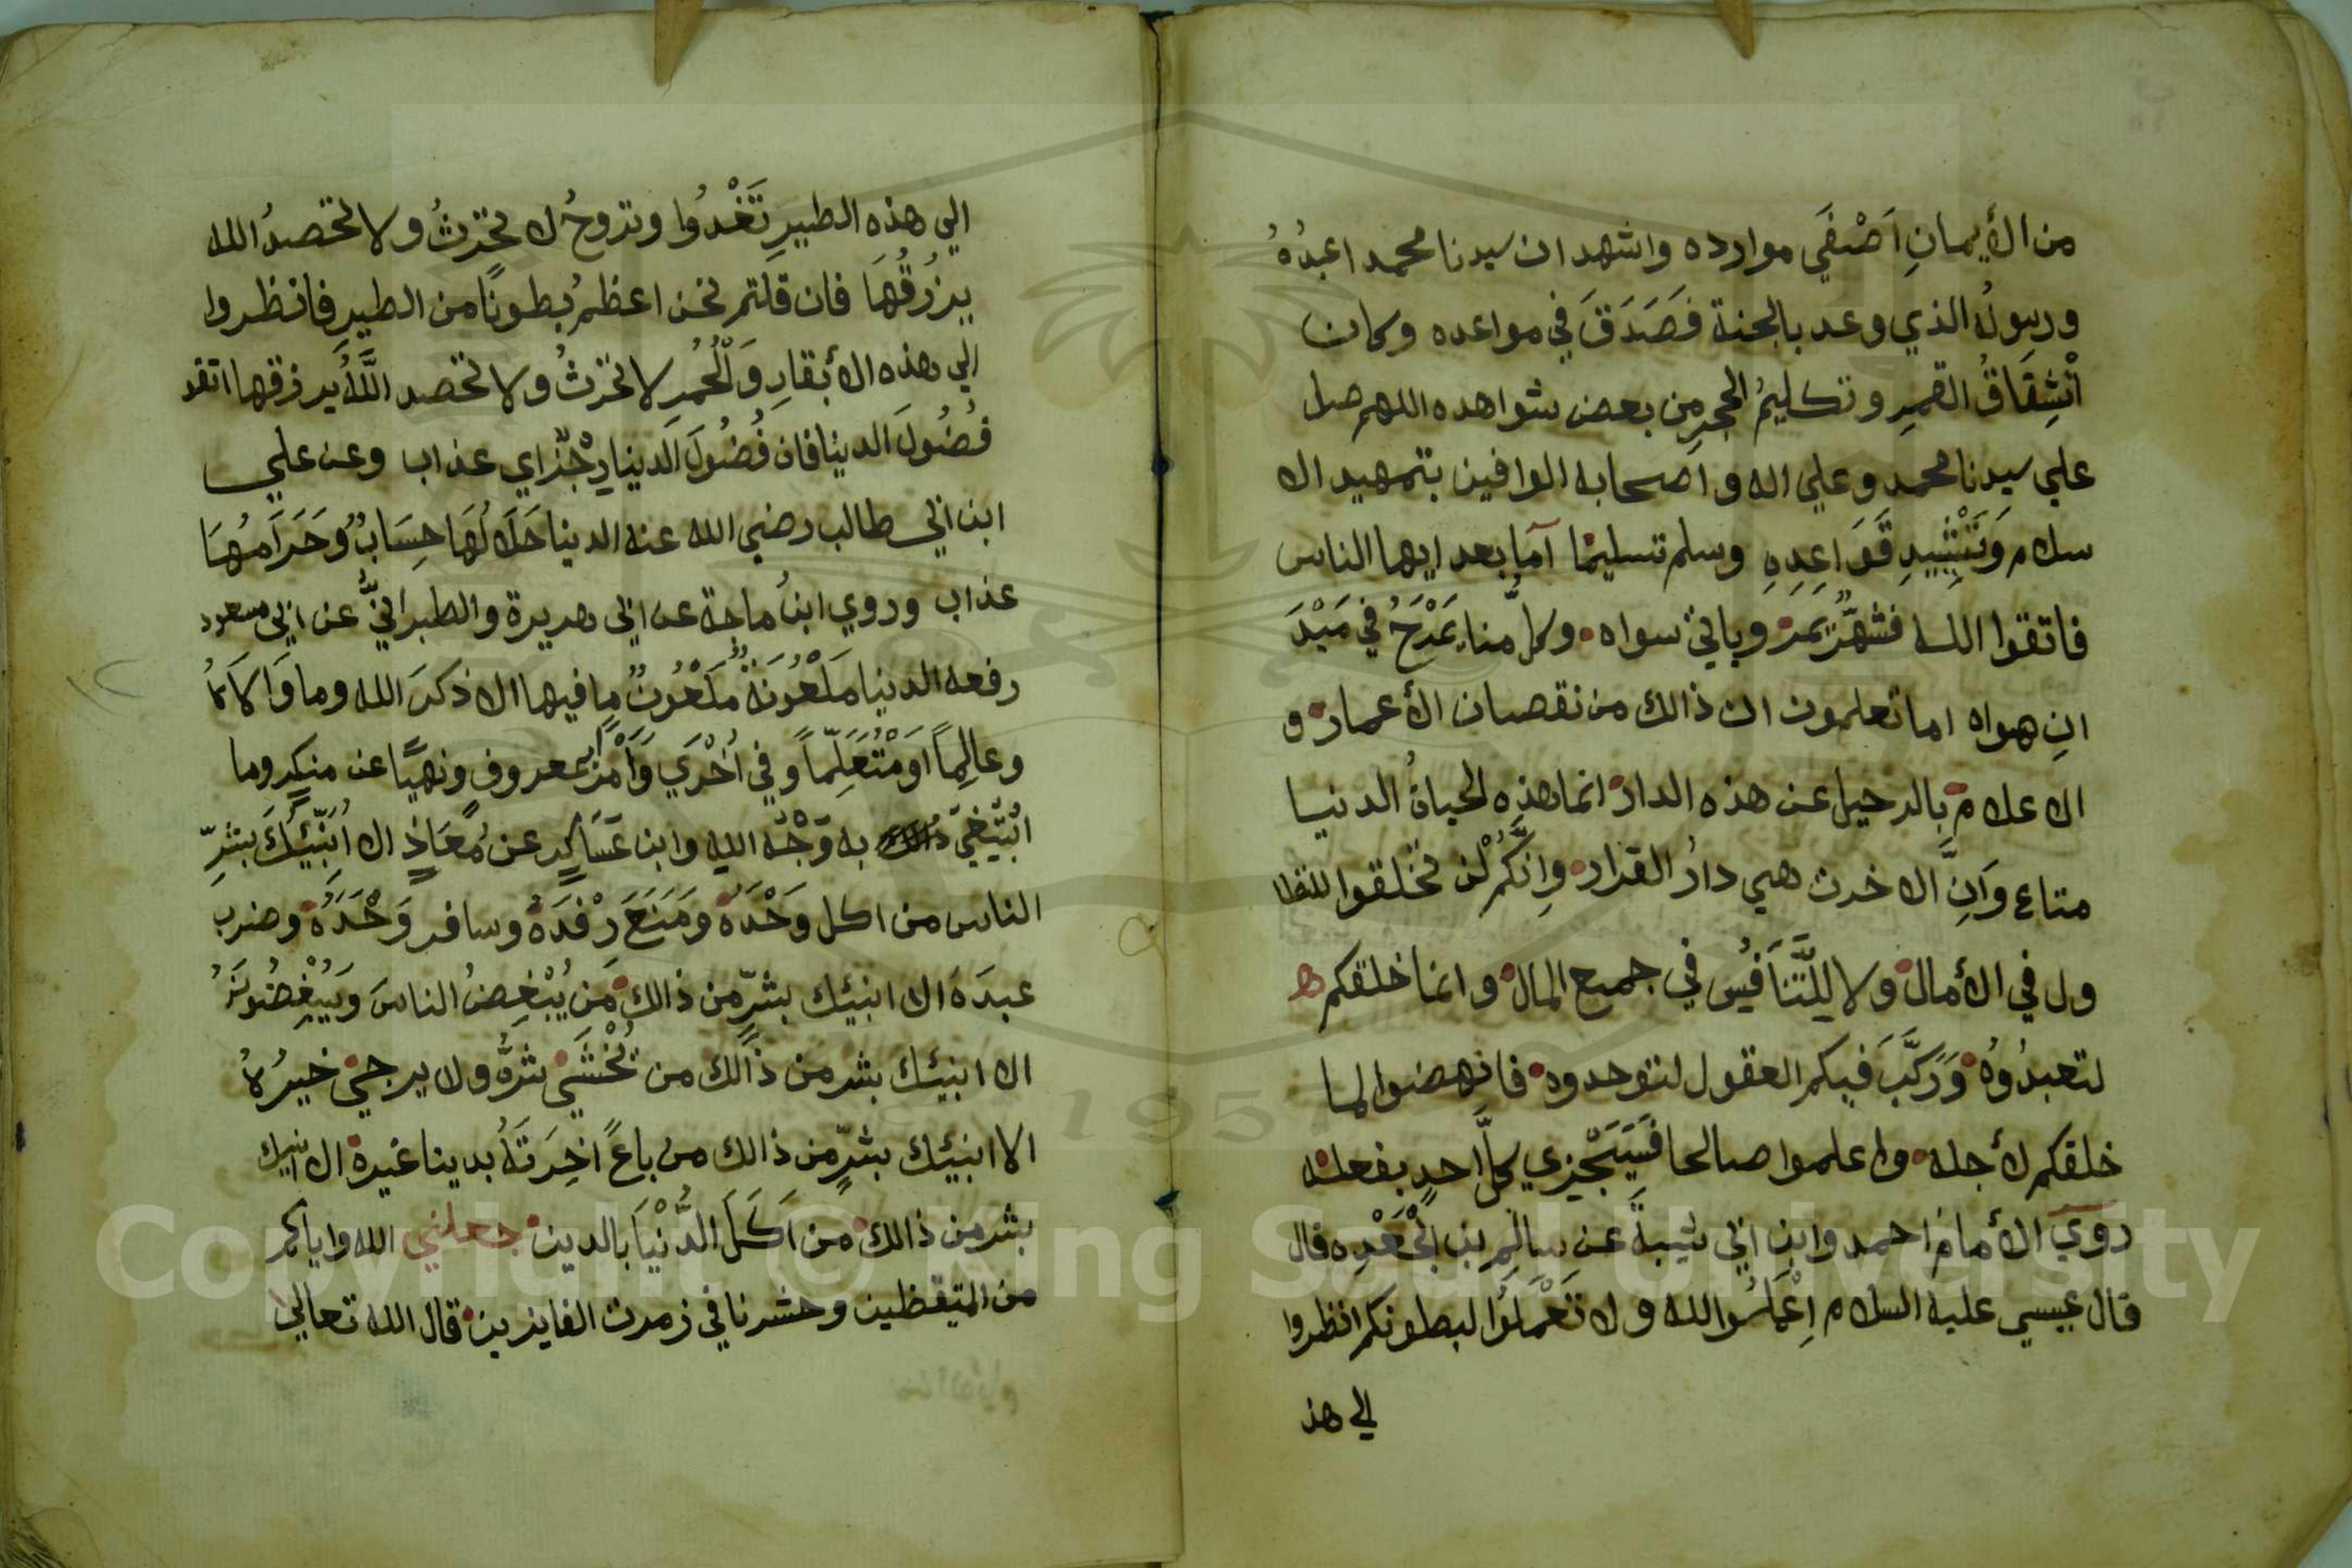 من الأيمانِ اَصْفَي موارده واشهد ان سيدنا محمد اعبدُهُ
ورسولُه الذي وعد بالجنة فَصَدَقَ في مواعده وكان
اْنْشِقَاقُ القمرِ وتكليمُ الحجرِ من بعض شواهده اللهم صل
علي سيدنا محمد وعلي اله واصحابه الوافين بتمهيد الا
سلام وَتَشْيِيدِ قَوَاعِدِهِ وسلم تسليمًا آمّا بعد ايها الناس
فاتقوا الله فشهرٌ يَمر وياتي سواه وكلٌ منا يَمْرَحُ في مَيْدَ
انِ هواه اما تعلمون ان ذالك من نقصان الأعمار و
الاعلام بالرحيل عن هذه الدار انما هذِه الحياةُ الدنيا
متاع وَاَنِّ الاخرت هي دارُ القرار وِانَّكُمْ لن تُخْلقوا للتطا
ول في الأمال ولا لِلتَّنَافُيس في جميع المال وانما خلقكم ه
لتعبدُوُه وَرَكَّبَ فيكم العقول لتوحدوه فانهضوا لما
خلقكم لأجله واعلموا صالحا فَسَيَجْزِي كلَّ احدٍ بفعله
روي الأمام احمد وابن ابي شيبةَ عن سالمِ بن ابي جَعْدِه قال
قال عيسي عليه السلام اِعْمَلُوا لله ولا تَعْمَلُوَا لبطونكم انظروا
الي هذ
الي هذه الطيرِ تَغْدُوا وتروحُ لا تحرثُ ولا تحصدُ الله
يرزُقُهَا فان قلتم نحن اعظمُ بطونًا من الطيرِ فانظروا
الي هذه الأبقارِ وَلْحُمُرِ لا تحرثُ ولا تحصد اللَّهُ يرزقها اتقو
فُضُولَ الدينا فان فُضُولَ الدينا رِجْزٌ اي عذاب وعن علي
ابن ابي طالب رضي الله عنه الدينا حَلَالُهَا حِسَابٌ وَحَرَامُهَا
عذاب وروي ابنُ ماجة عن ابي هريرة والطبرانيُّ عن ابي مسعود
رفعه الدنيا مَلْعُونَةٌ مَلْعُونٌ ما فيها الا ذكرَ الله وما وَالَاهُ
وعالِمًا اَوْمُتَعَلِّمًا وفي اُخْرَي وَاَمْرٌ بمعروف ونهيًا عن منكرٍ وما
ابْتُغِيَ به وَجْهُ اللهِ وابن عَسَاكِرٍ عن مُعَاذٍ الا اُنَبِّئُكَ بشرِّ
الناس من اكل وَحْدَهُ ومَنَعَ رِفْدَهُ وسافر وَحْدَهُ وضرب
عبدَهُ الا انبئك بشرٍّ من ذالك مَن يُبْغِضُ الناسَ وَيُبْغِضُونَهُ
الا انبئك بشر من ذالك من تُخْشَي شرُّهُ ولا يرجي خيرُهُ
الا انبئك بشرٍّ من ذالك من باعَ اخِرَتَهُ بدينا غيره الا انبئك
بشر من ذالك من اَكَلَ الدُّنْيَا بالدين جعلني الله واياكم
من المتيقظين وحشرنا في زمرت الفايزين قال الله تعالي